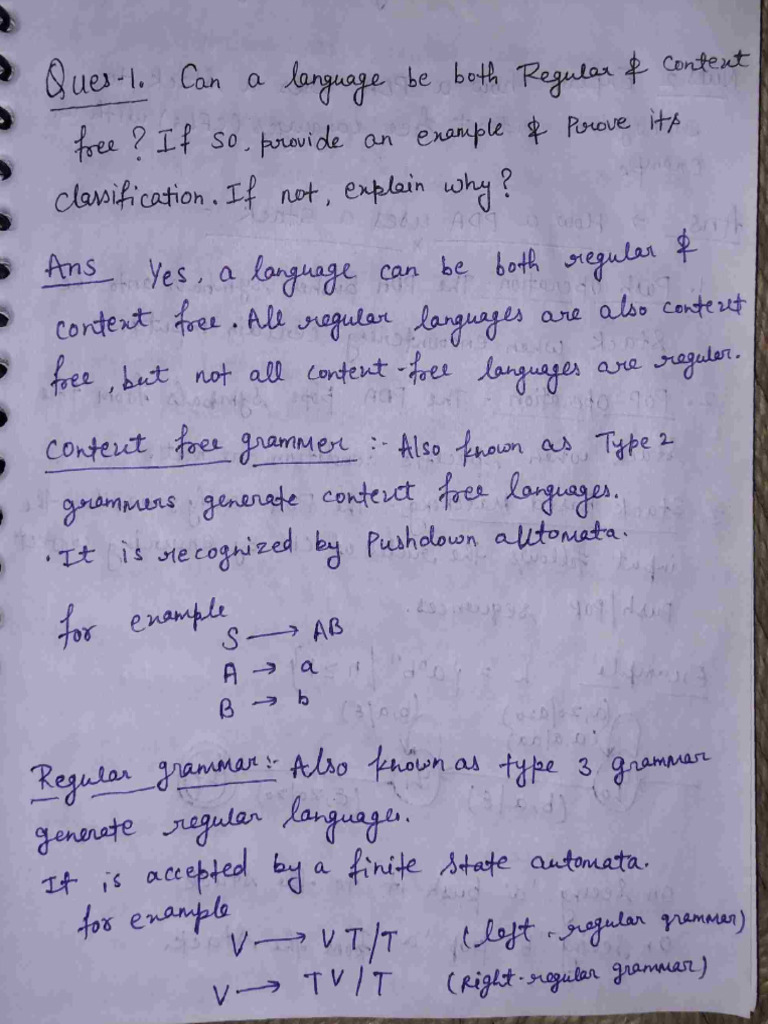 Ques-1. Can a language be both Regular & context
free? If so, provide an example & Prove its
classification. If not, explain why?
Ans Yes, a language can be both regular &
context free. All regular languages are also context
free, but not all context-free languages are regular.
context free grammer :- Also known as Type 2
grammers generate context free languages.
. It is recognized by Pushdown automata.
for example
S → AB
A → a
B → b
Regular grammar:- Also known as type 3 grammar
generate regular languages.
It is accepted by a finite state automata.
for example
V → VT/T (left-regular grammar)
V → TV/T (Right-regular grammar)